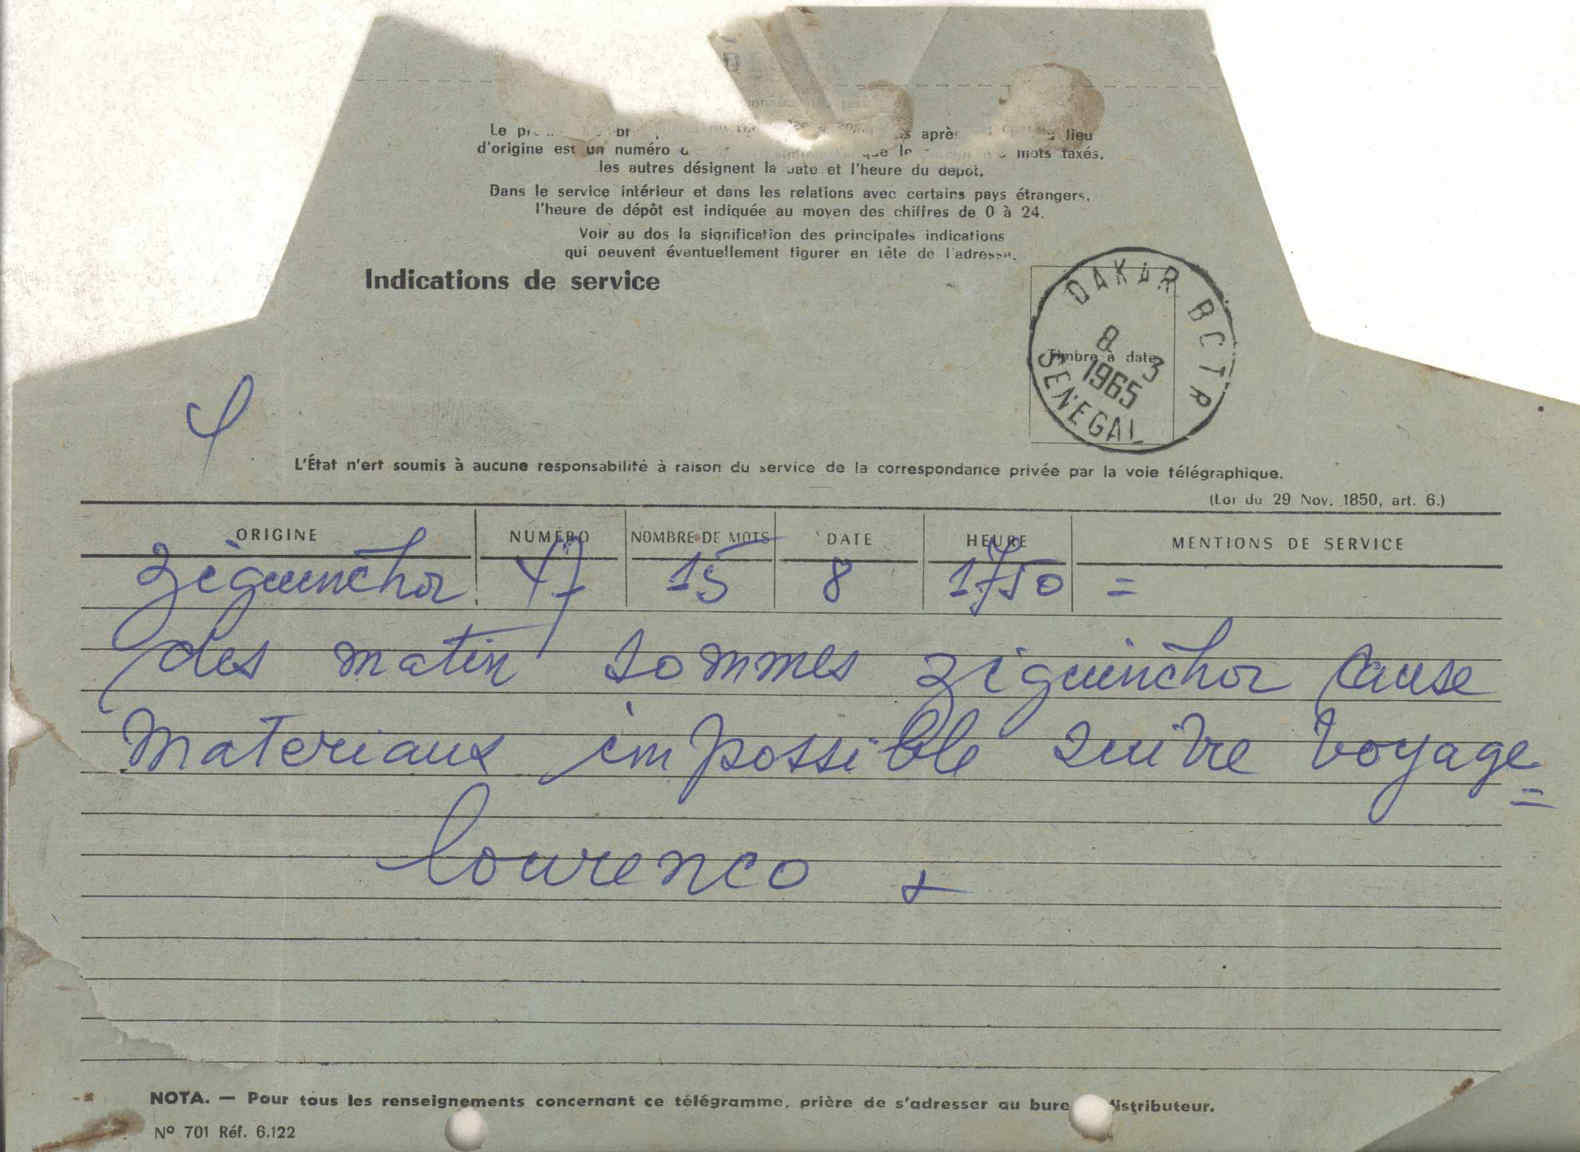 Le
après
lieu
d'origine est un numéro
que le
mots taxés,
les autres désignent la date et l'heure du depot.
Dans le service intérieur et dans les relations avec certains pays étrangers,
l'heure de dépôt est indiquée au moyen des chiffres de 0 à 24.
Voir au dos la signification des principales indications
qui peuvent éventuellement figurer en tête de l'adresse.
Indications de service
DAKAR BCTR
8 3
1965
SENEGAL
Timbre à date
L'État n'ert soumis à aucune responsabilité à raison du service de la correspondance privée par la voie télégraphique.
(Loi du 29 Nov. 1850, art. 6.)
ORIGINE NUMÉRO NOMBRE DE MOTS DATE HEURE MENTIONS DE SERVICE
ziguinchor 47 15 8 1750 =
des matin sommes ziguinchor cause
materiaux impossible suivre voyage
=
lourenco +
NOTA. — Pour tous les renseignements concernant ce télégramme, prière de s'adresser au bure distributeur.
Nº 701 Réf. 6.122